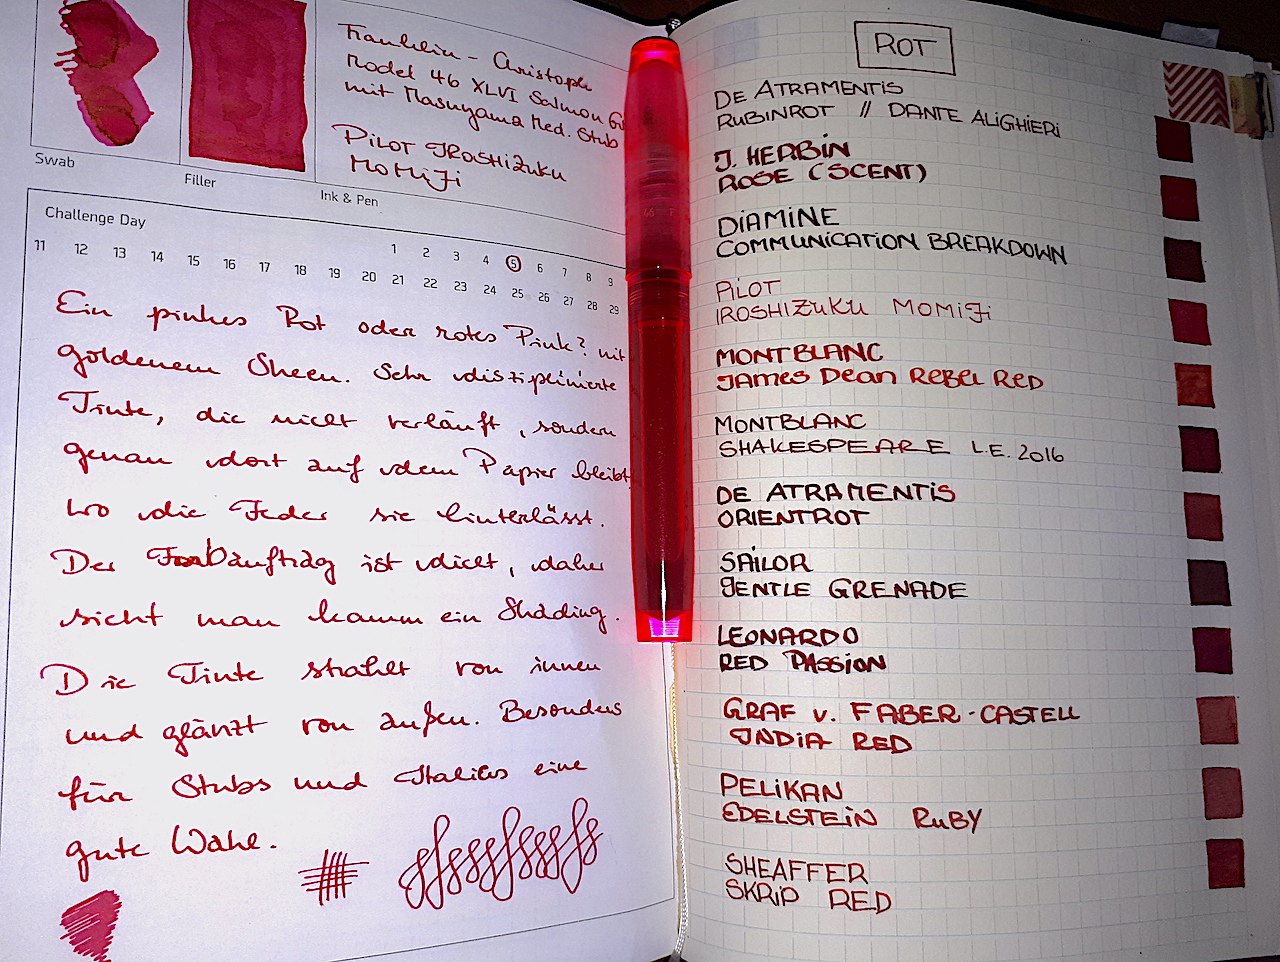 Franklin-Christoph
Model 46 XLVI Salmon
mit Masuyama Med. Stub
Pilot Iroshizuku
Momiji
Swab
Filler
Ink & Pen
Challenge Day
1 2 3 4 5 6 7 8 9
11 12 13 14 15 16 17 18 19 20 21 22 23 24 25 26 27 28 29
Ein pinkes Rot oder rotes Pink? mit
goldenem Sheen. Sehr disziplinierte
Tinte, die nicht verläuft, sondern
genau dort auf dem Papier bleibt,
wo die Feder sie hinterlässt.
Der Farbauftrag ist dicht, daher
sieht man kaum ein Shading.
Die Tinte strahlt von innen
und glänzt von außen. Besonders
für Stubs und Italics eine
gute Wahl.
ROT
DE ATRAMENTIS
RUBINROT // DANTE ALIGHIERI
J. HERBIN
ROSE (SCENT)
DIAMINE
COMMUNICATION BREAKDOWN
PILOT
IROSHIZUKU MOMIJI
MONTBLANC
JAMES DEAN REBEL RED
MONTBLANC
SHAKESPEARE L.E. 2016
DE ATRAMENTIS
ORIENTROT
SAILOR
GENTLE GRENADE
LEONARDO
RED PASSION
GRAF v. FABER-CASTELL
INDIA RED
PELIKAN
EDELSTEIN RUBY
SHEAFFER
SKRIP RED